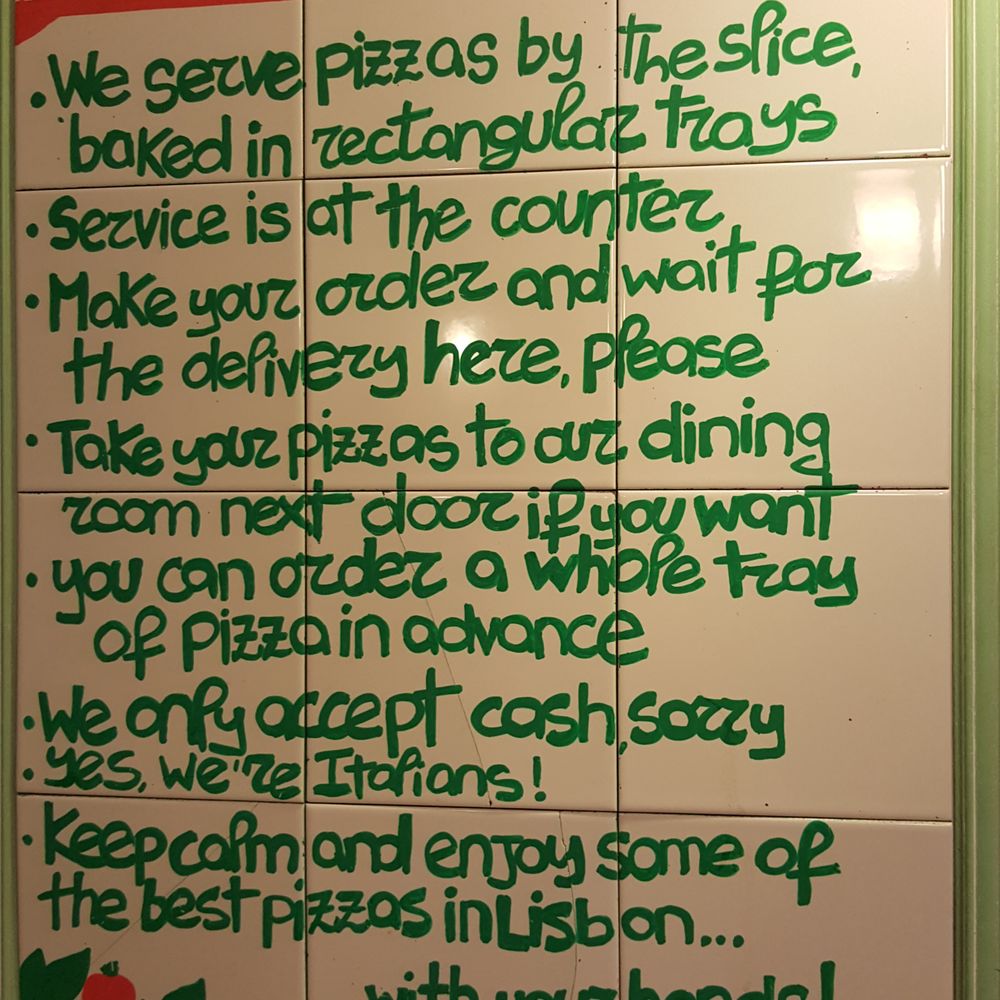 • We serve pizzas by the slice,
baked in rectangular trays
• Service is at the counter
• Make your order and wait for
the delivery here, please
• Take your pizzas to our dining
room next door if you want
• you can order a whole tray
of pizza in advance
• We only accept cash, sorry
• yes, we're Italians!
• Keep calm and enjoy some of
the best pizzas in Lisbon...
with your hands!